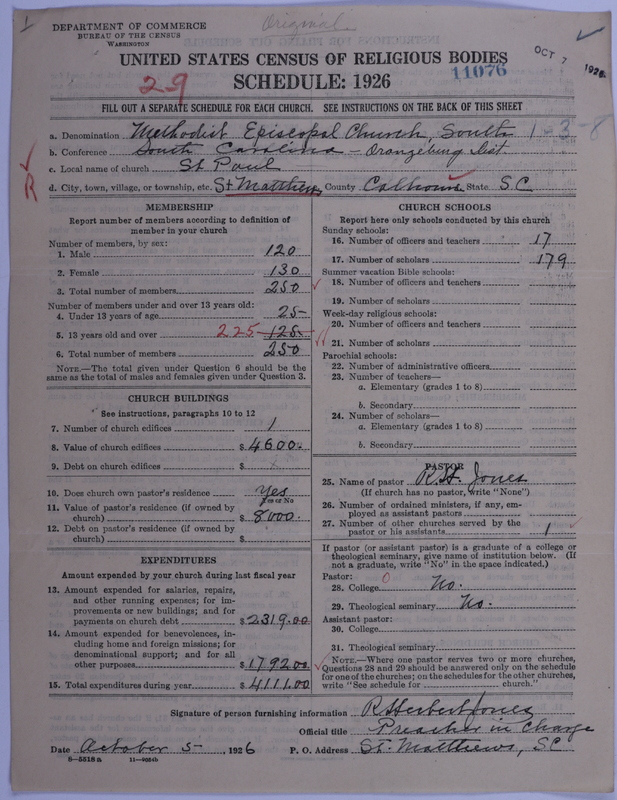 1
DEPARTMENT OF COMMERCE
BUREAU OF THE CENSUS
WASHINGTON
Original
OCT 7 1926
UNITED STATES CENSUS OF RELIGIOUS BODIES
11076
29
SCHEDULE: 1926
FILL OUT A SEPARATE SCHEDULE FOR EACH CHURCH. SEE INSTRUCTIONS ON THE BACK OF THIS SHEET
a. Denomination Methodist Episcopal Church, South 1-3-8
b. Conference South Carolina - Orangeburg Dist.
c. Local name of church St Paul
R
d. City, town, village, or township, etc. St Matthews County Calhoun State S.C
MEMBERSHIP
Report number of members according to definition of member in your church
Number of members, by sex:
1. Male 120
2. Female 130
3. Total number of members 250
Number of members under and over 13 years old:
4. Under 13 years of age 25
5. 13 years old and over 225 125
6. Total number of members 250
NOTE.—The total given under Question 6 should be the same as the total of males and females given under Question 3.
CHURCH BUILDINGS
See instructions, paragraphs 10 to 12
7. Number of church edifices 1
8. Value of church edifices $ 4600.
9. Debt on church edifices $ x
10. Does church own pastor's residence Yes
Yes or No
11. Value of pastor's residence (if owned by church) $ 8000.
12. Debt on pastor's residence (if owned by church) $
EXPENDITURES
Amount expended by your church during last fiscal year
13. Amount expended for salaries, repairs, and other running expenses; for improvements or new buildings; and for payments on church debt $ 2319.00
14. Amount expended for benevolences, including home and foreign missions; for denominational support; and for all other purposes $ 1792.00
15. Total expenditures during year $ 4111.00
CHURCH SCHOOLS
Report here only schools conducted by this church
Sunday schools:
16. Number of officers and teachers 17
17. Number of scholars 179
Summer vacation Bible schools:
18. Number of officers and teachers
19. Number of scholars
Week-day religious schools:
20. Number of officers and teachers
21. Number of scholars
Parochial schools:
22. Number of administrative officers
23. Number of teachers—
a. Elementary (grades 1 to 8)
b. Secondary
24. Number of scholars—
a. Elementary (grades 1 to 8)
b. Secondary
PASTOR
25. Name of pastor R. H. Jones
(If church has no pastor, write "None")
26. Number of ordained ministers, if any, employed as assistant pastors
27. Number of other churches served by the pastor or his assistants 1
If pastor (or assistant pastor) is a graduate of a college or theological seminary, give name of institution below. (If not a graduate, write "No" in the space indicated.)
Pastor: 0
28. College No.
29. Theological seminary No.
Assistant pastor:
30. College
31. Theological seminary
NOTE.—Where one pastor serves two or more churches, Questions 28 and 29 should be answered only on the schedule for one of the churches; on the schedules for the other churches, write "See schedule for church."
Signature of person furnishing information R Herbert Jones
Official title Preacher in Charge
Date October 5, 1926 P. O. Address St. Matthews, SC
8-5518 a 11-9064b